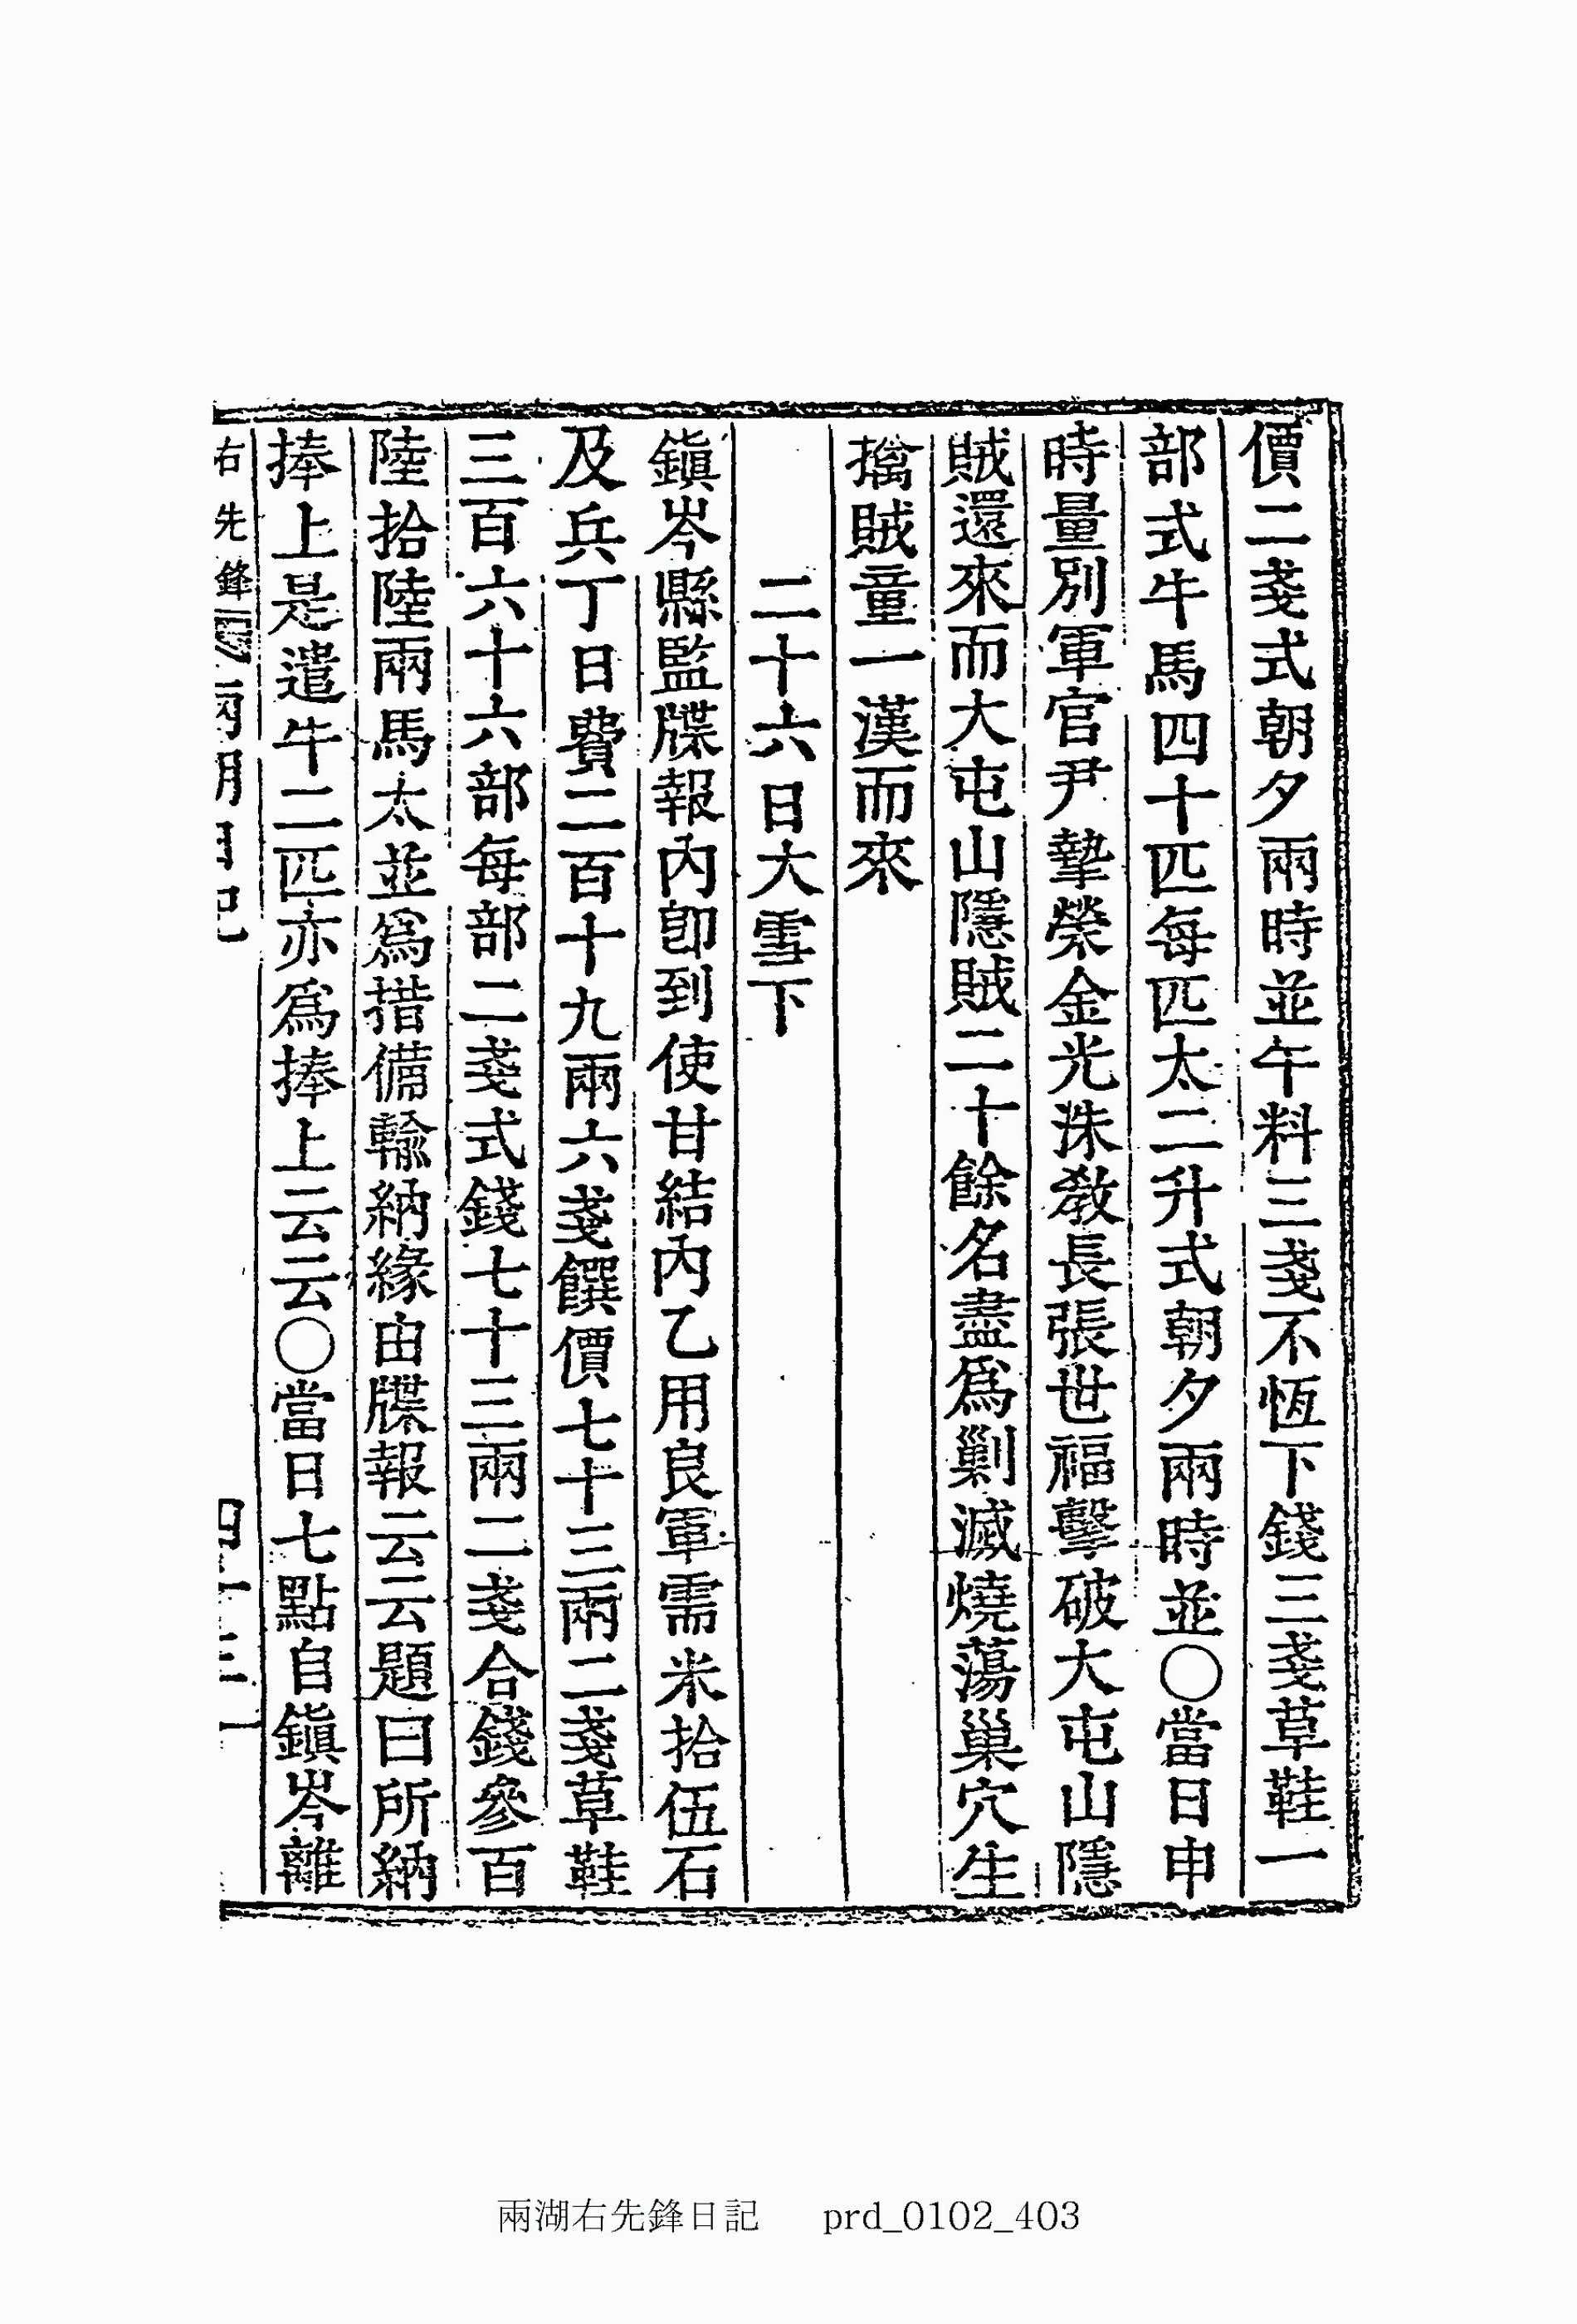 價二戔式朝夕兩時並午料三戔不恆下錢三戔草鞋一
部式牛馬四十匹每匹太二升式朝夕兩時並〇當日申
時量別軍官尹摯榮金光洙敎長張世福擊破大屯山隱
賊還來而大屯山隱賊二十餘名盡爲剿滅燒蕩巢穴生
擒賊童一漢而來
二十六日大雪下
鎭岑縣監牒報內卽到使甘結內乙用良軍需米拾伍石
及兵丁日費二百十九兩六戔饌價七十三兩二戔草鞋
三百六十六部每部二戔式錢七十三兩二戔合錢參百
陸拾陸兩馬太並爲措備輸納緣由牒報云云題曰所納
捧上是遣牛二匹亦爲捧上云云〇當日七點自鎭岑離
右先鋒 兩湖日記 四十三
兩湖右先鋒日記 prd_0102_403